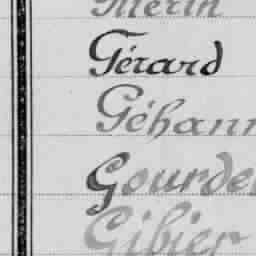 Gérard
Géhann
Gourde
Gibier